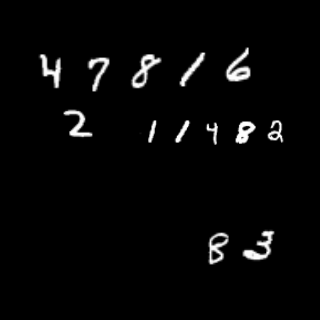 47816
2 11482
83